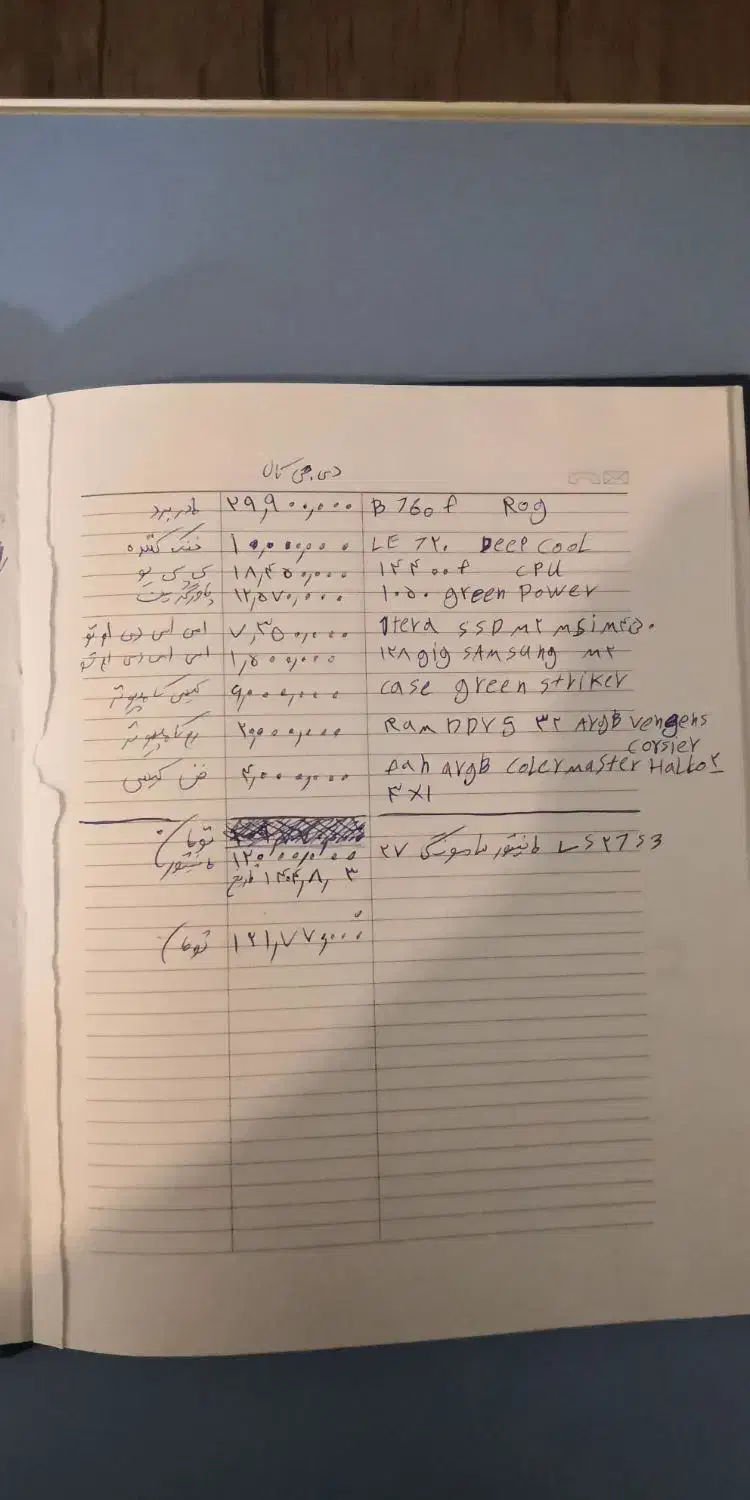 دی جی کالا
مادربرد ۲۹,۹۰۰,۰۰۰ B 760 f Rog
خنک کننده ۱۰,۰۰۰,۰۰۰ LE ۷۲۰ Deep cool
سی پی یو ۱۸,۴۵۰,۰۰۰ ۱۴۴۰۰f CPU
پاورگرین ۱۲,۵۷۰,۰۰۰ ۱۰۵۰ green Power
اس اس دی ام تو ۷,۳۵۰,۰۰۰ 1tera SSD M۲ MSi M۴۵۰
اس اس دی ام تو ۱,۵۰۰,۰۰۰ ۱۲۸ gig SAMSUng M۲
کیس کامپیوتر ۹,۰۰۰,۰۰۰ case green striker
رم کامپیوتر ۲۰,۰۰۰,۰۰۰ Ram DDR 5 ۳۲ ArgB vengens
corsier
فن کیس ۴,۰۰۰,۰۰۰ fan argB colermaster Hallo۲
۳×۱
تومان
مانیتور ۱۲,۰۰۰,۰۰۰ ۲۷ مانیتور سامسونگ LS27S3
تاریخ ۱۴۰۴,۸,۳
تومان ۱۲۱,۷۷۰,۰۰۰